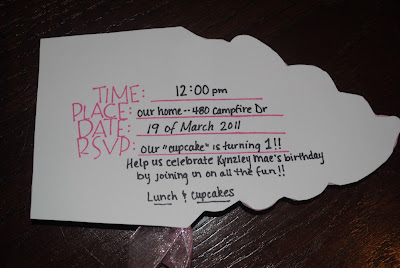 TIME: 12:00 pm
PLACE: our home--480 Campfire Dr
DATE: 19 of March 2011
RSVP: our "cupcake" is turning 1!!
Help us celebrate Kynzley Mae's birthday
by joining in on all the fun!!
Lunch & Cupcakes